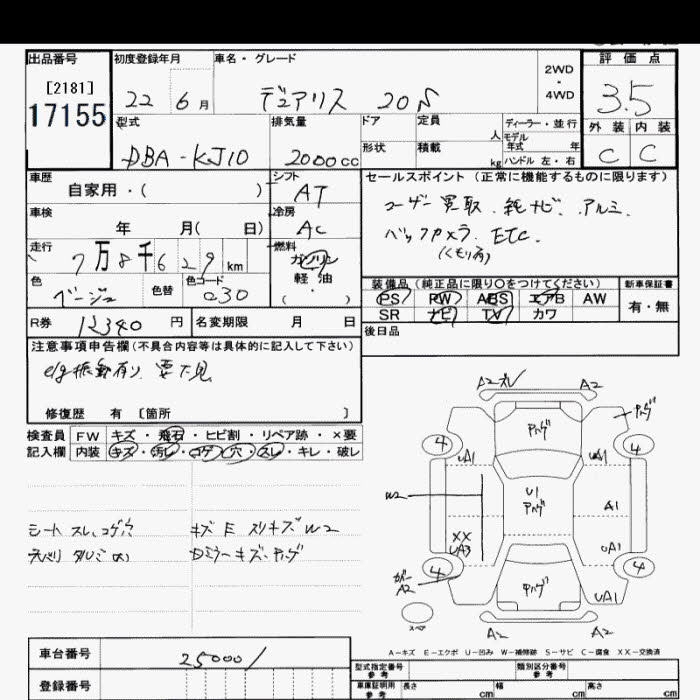 出品番号 初度登録年月 車名・グレード 評価点
[2181]
17155
22 6月 デュアリス 20S 2WD・4WD 3.5
型式 排気量 ドア 定員 人 ディーラー・並行 外装 内装
モデル年式 年
DBA-KJ10 2000cc 形状 積載 kg ハンドル 左・右 C C
車歴 シフト セールスポイント (正常に機能するものに限ります)
自家用・( ) AT
ユーザー買取、純ナビ、アルミ、
車検 冷房
年 月( 日) AC
バックカメラ、ETC.
(くもり有)
走行 燃料
7万8千629km ガソリン
軽油
・( )
色 色替 色コード
ベージュ 030
装備品 (純正品に限り○をつけてください) 新車保証書
PS PW ABS エアB AW 有・無
SR ナビ TV カワ
R券 12340円 名変期限 月 日
後日品
注意事項申告欄(不具合内容等は具体的に記入して下さい)
e/g振動有り、要下見
修復歴 有 [箇所 ]
検査員 FW キズ・飛石・ヒビ割・リペア跡・×要
記入欄 内装 キズ・汚レ・コゲ・穴・スレ・キレ・破レ
シート スレ、コゲ穴 キズ E スリキズ W2
Dミラーキズ・
A2 A2
4 4
UA1 UA1
W2
U1
A1
XX
UA3 UA1
4 4
カバー
A2
UA1
スペア
A2 A2
A-キズ E-エクボ U-凹み W-補修跡 S-サビ C-腐食 XX-交換済
車台番号 25000/
型式指定番号 参考 類別区分番号 参考
登録番号
車庫証明用 参考 長さ cm 幅 cm 高さ cm